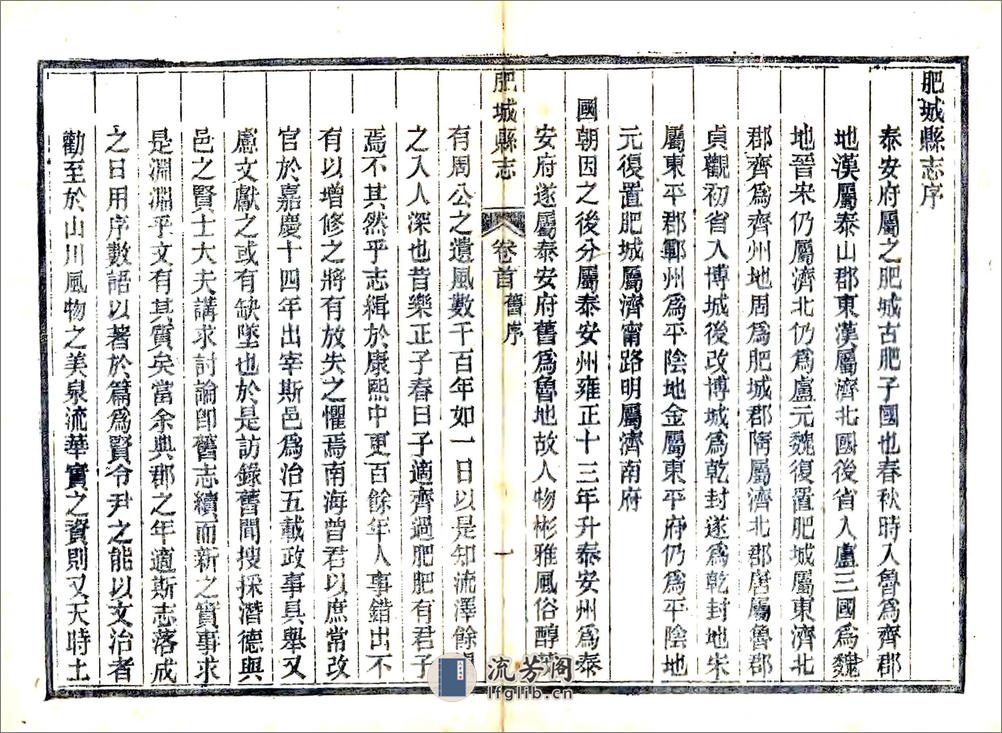 肥城縣志序
泰安府屬之肥城古肥子國也春秋時入魯爲齊郡
地漢屬泰山郡東漢屬濟北國後省入盧三國爲魏
地晉宋仍屬濟北仍爲盧元魏復置肥城屬東濟北
郡齊爲齊州地周爲肥城郡隋屬濟北郡唐屬魯郡
貞觀初省入博城後改博城爲乾封遂爲乾封地宋
屬東平郡鄆州爲平陰地金屬東平府仍爲平陰地
元復置肥城屬濟甯路明屬濟南府
國朝因之後分屬泰安州雍正十三年升泰安州爲泰
安府遂屬泰安府舊爲魯地故人物彬雅風俗醇
肥城縣志 卷首 舊序 一
有周公之遺風數千百年如一日以是知流澤餘
之入人深也昔樂正子春曰子適齊過肥肥有君子
焉不其然乎志緝於康熙中更百餘年人事錯出不
有以增修之將有放失之懼焉南海曾君以庶常改
官於嘉慶十四年出宰斯邑爲治五載政事具舉又
慮文獻之或有缺墜也於是訪錄舊聞搜採潛德與
邑之賢士大夫講求討論卽舊志續而新之實事求
是淵淵乎文有其質矣當余典郡之年適斯志落成
之日用序數語以著於篇爲賢令尹之能以文治者
勸至於山川風物之美泉流華實之資則又天時土
流芳閣
lfglib.cn